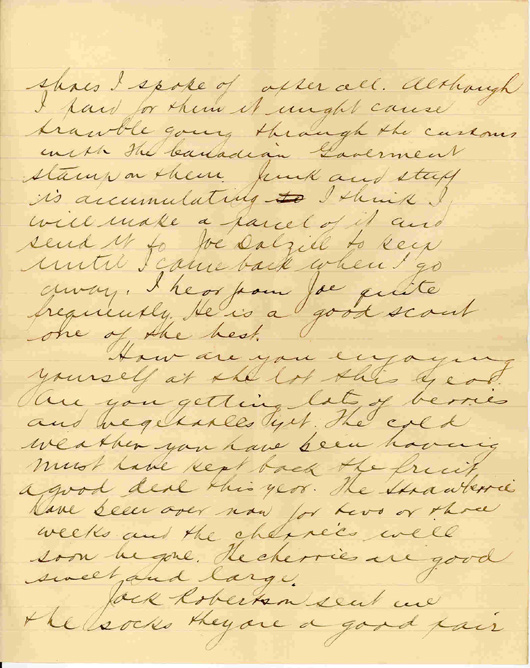 shoes I spoke of after all. Although
I paid for them it might cause
trawble going through the customs
with the Canadian Goverment
stamp on them. Junk and stuff
is accumulating so I think I
will make a parcel of it and
send it to Joe Dalzill to keep
until I come back when I go
away. I hear from Joe quite
frequently. He is a good scout
one of the best.
How are you enjoying
yourself at the lot this year.
Are you getting lots of berries
and vegetables yet. The cold
weather you have been having
must have kept back the fruit
a good deal this year. The strawberrie
have been over now for two or three
weeks and the cherries will
soon be gone. The cherries are good
sweet and large.
Jack Robertson sent me
the socks they are a good pair